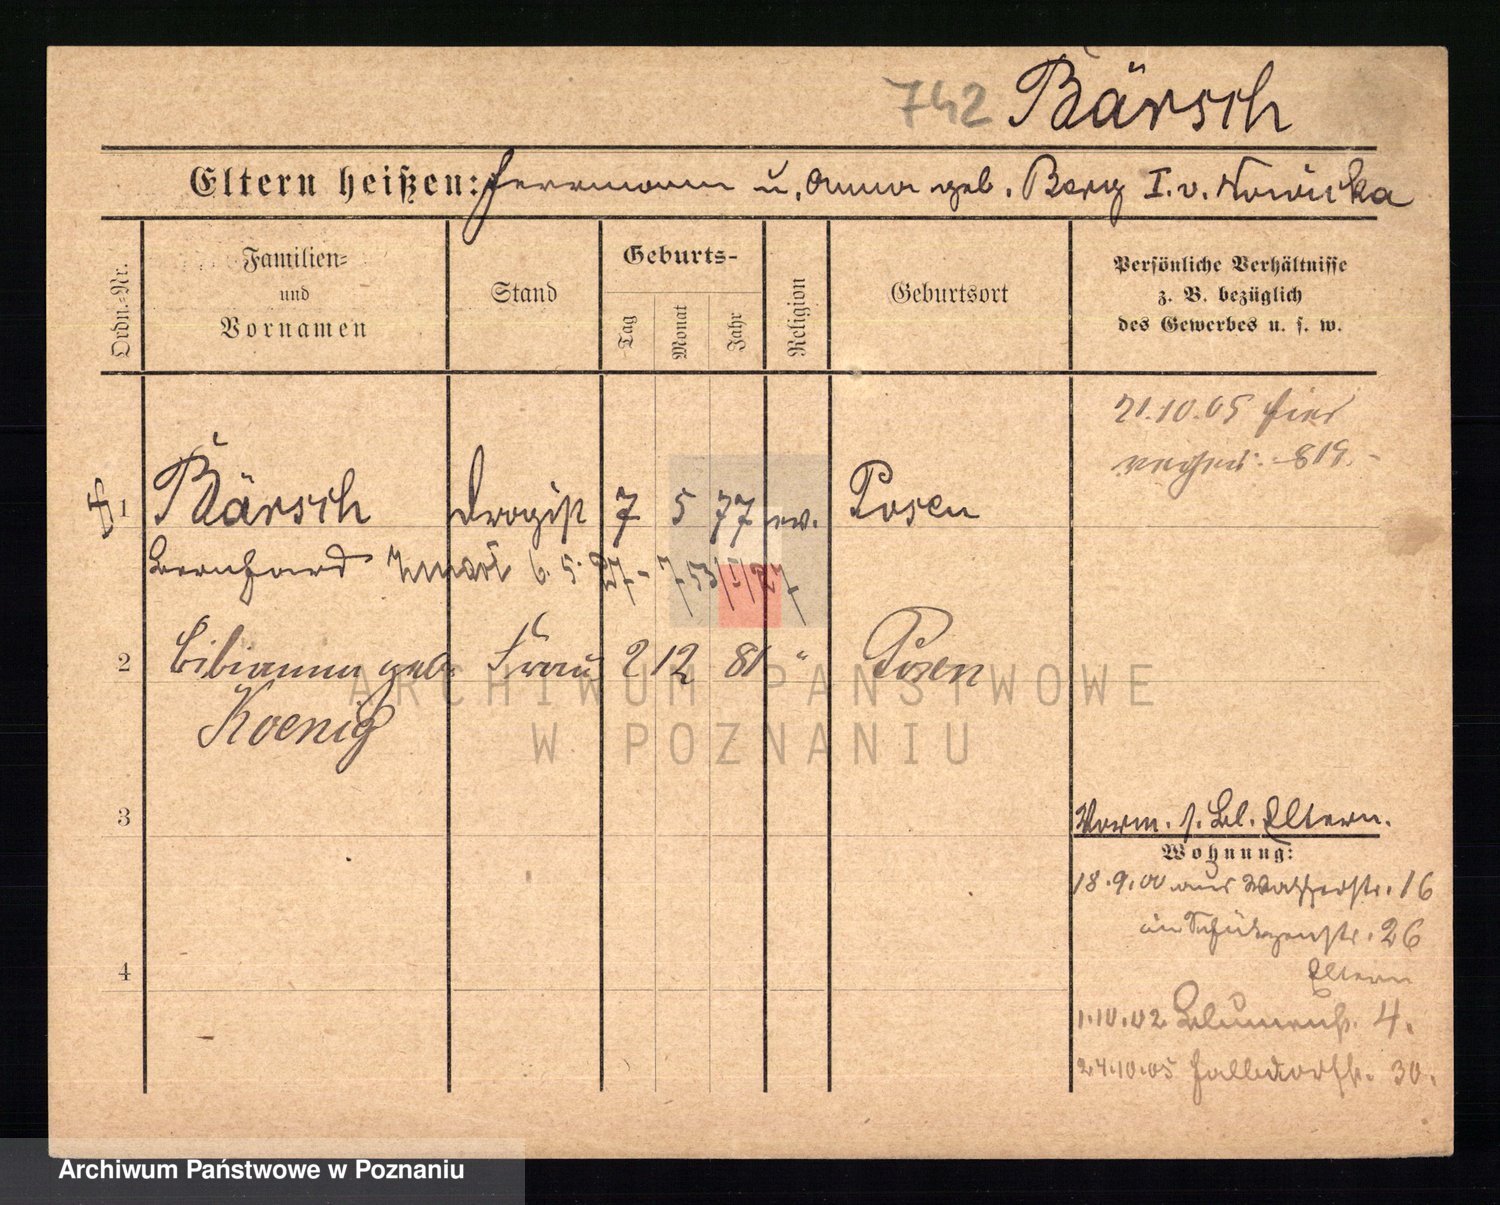 742 Bärsch
Eltern heißen: Herrmann u. Anna geb. Berg I. v. Nowicka
Ordn.-Nr.
Familien-
und
Vornamen
Stand
Geburts-
Tag
Monat
Jahr
Religion
Geburtsort
Persönliche Verhältnisse
z. B. bezüglich
des Gewerbes u. s. w.
21.10.05 hier
819.
1 Bärsch Drogist 7 5 77 ev. Posen
Bernhard 6. 5. 27 - 753/I/27
2 Bibianna geb. Frau 2 12 81 " Posen
Koenig
3
4
Vorm. s. Bl. Eltern.
Wohnung:
18.9.00 aus Wasserstr. 16
in Schützenstr. 26
Eltern
1.10.02 Blumenstr. 4.
24.10.05 Halldorfstr. 30.
ARCHIWUM PAŃSTWOWE
W POZNANIU
Archiwum Państwowe w Poznaniu